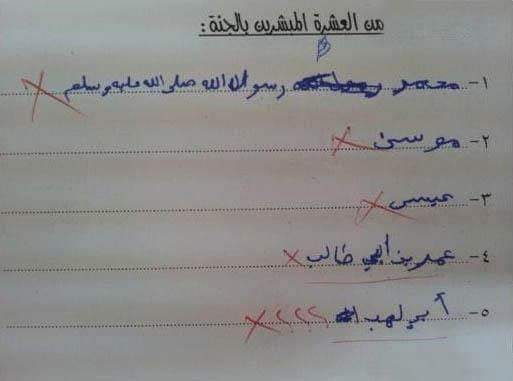 من العشرة المبشرين بالجنة :
١- محمد رسول الله صلى الله عليه وسلم
٢- موسى
٣- عيسى
٤- عمر بن أبي طالب
٥- أبو لهب ؟؟؟؟